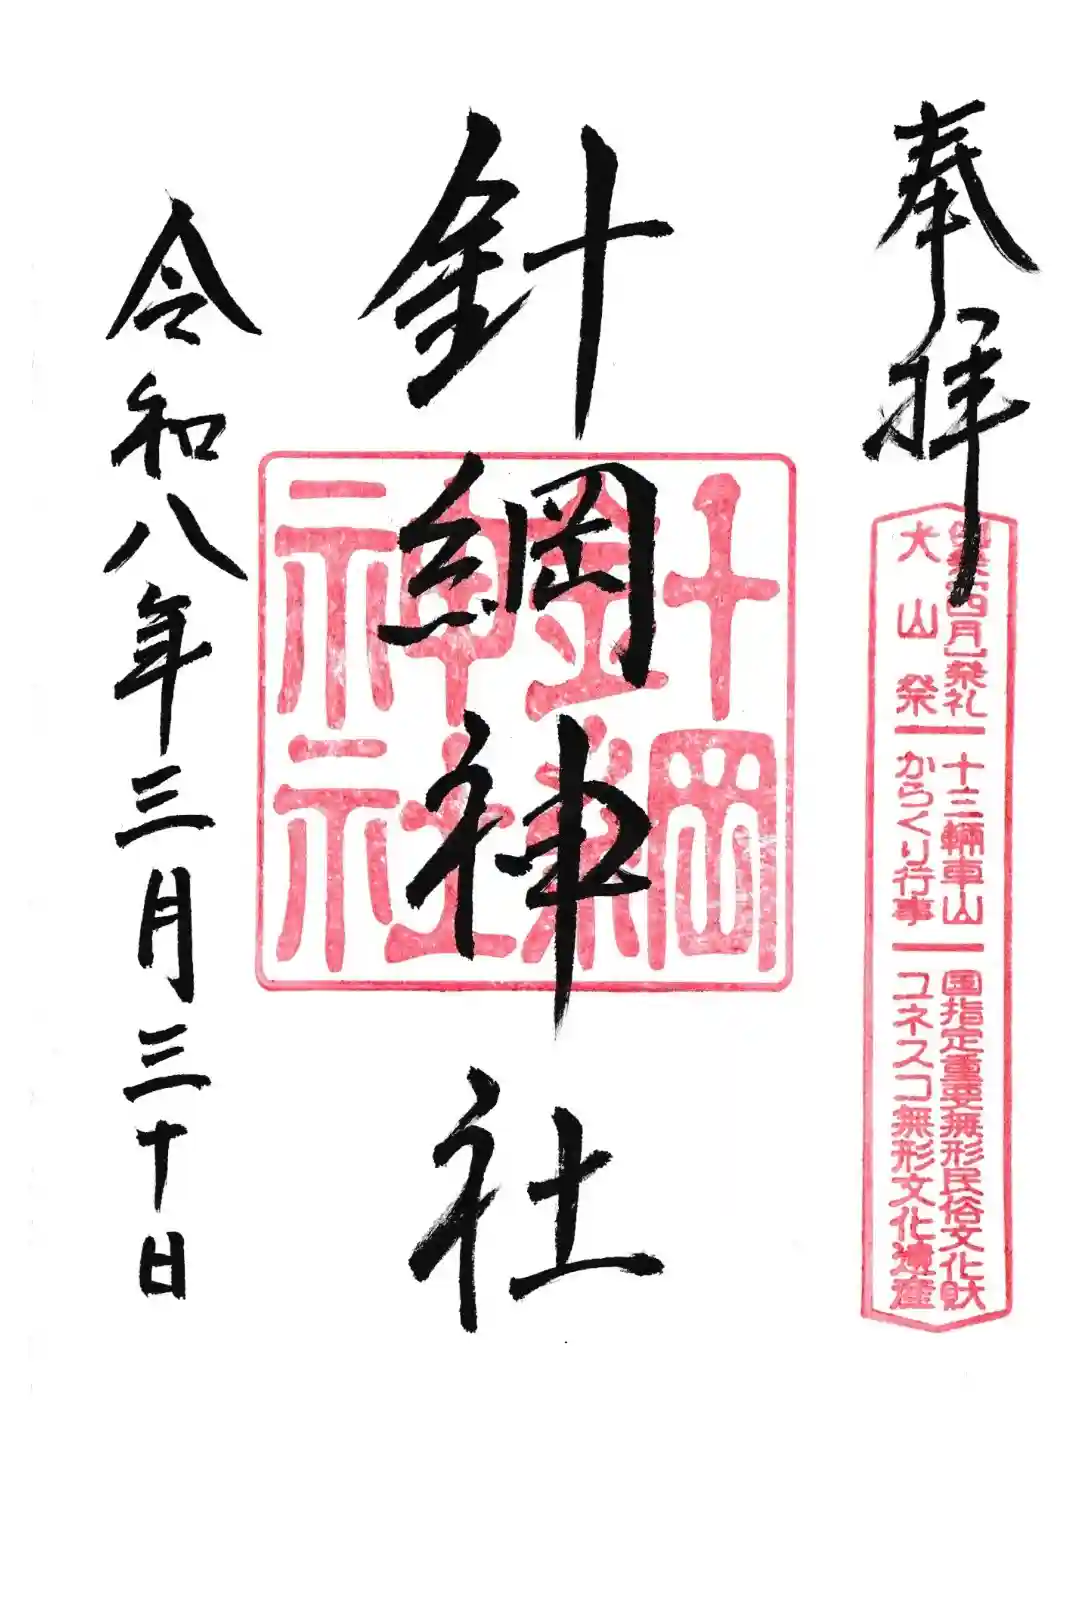 奉拝
祭礼 十三輛車山 国指定重要無形民俗文化財
犬山祭 からくり行事 ユネスコ無形文化遺産
針綱神社
針綱神社
令和八年三月三十日